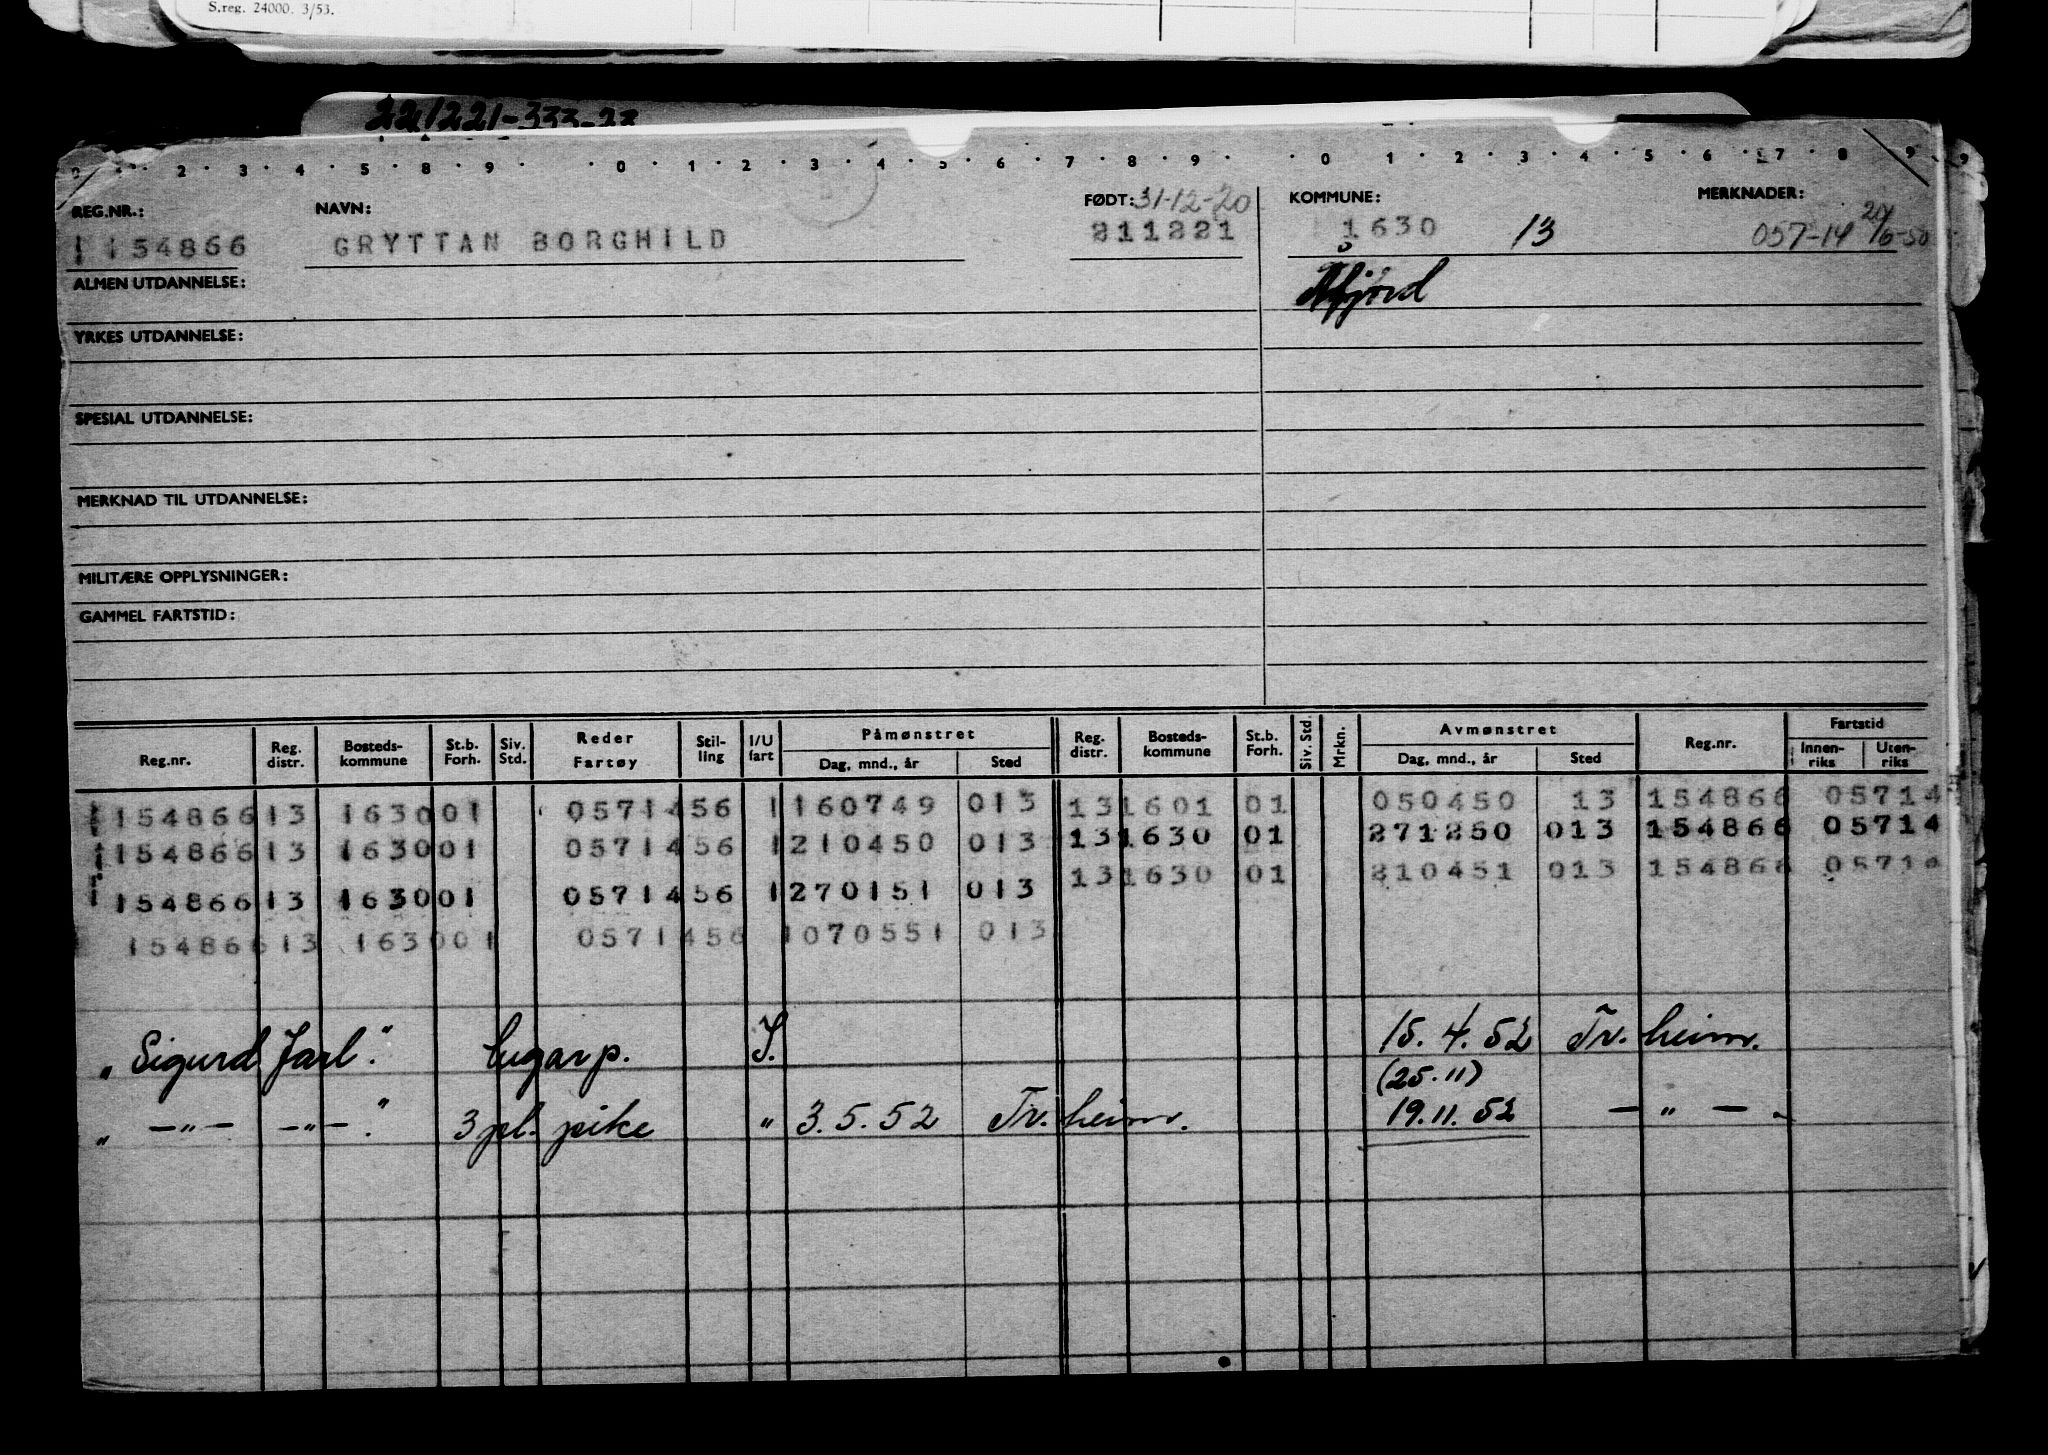 S.reg. 24000. 3/53.
221221-333-23
2 3 4 5 8 9 0 1 2 3 4 5 6 7 8 9 0 1 2 3 4 5 6 7 8 9
REG.NR.: NAVN: FØDT: 31-12-20 KOMMUNE: MERKNADER:
154866 GRYTTAN BORGHILD 211221 1630 13 057-14 20/6-50
ALMEN UTDANNELSE: Åfjord
YRKES UTDANNELSE:
SPESIAL UTDANNELSE:
MERKNAD TIL UTDANNELSE:
MILITÆRE OPPLYSNINGER:
GAMMEL FARTSTID:
Reg.nr. Reg. distr. Bosteds-kommune St.b. Forh. Siv. Std. Reder Fartøy Stil-ling I/U fart Påmønstret Dag, mnd., år Sted Reg. distr. Bosteds-kommune St.b. Forh. Siv. Std. Mrkn. Avmønstret Dag, mnd., år Sted Reg.nr. Fartstid Innen-riks Uten-riks
154866 13 1630 01 05714 56 1 160749 013 13 1601 01 050450 13 154866 05714
154866 13 1630 01 05714 56 1 210450 013 13 1630 01 271250 013 154866 05714
154866 13 1630 01 05714 56 1 270151 013 13 1630 01 210451 013 154866 05714
154866 13 1630 01 05714 56 1 070551 013
" Sigurd Jarl". Cugarp. I. 15.4.52 Tr.heim.
(25.11)
" —"— —"—". 3 pl. pike " 3.5.52 Tr.heim. 19.11.52 — " — .